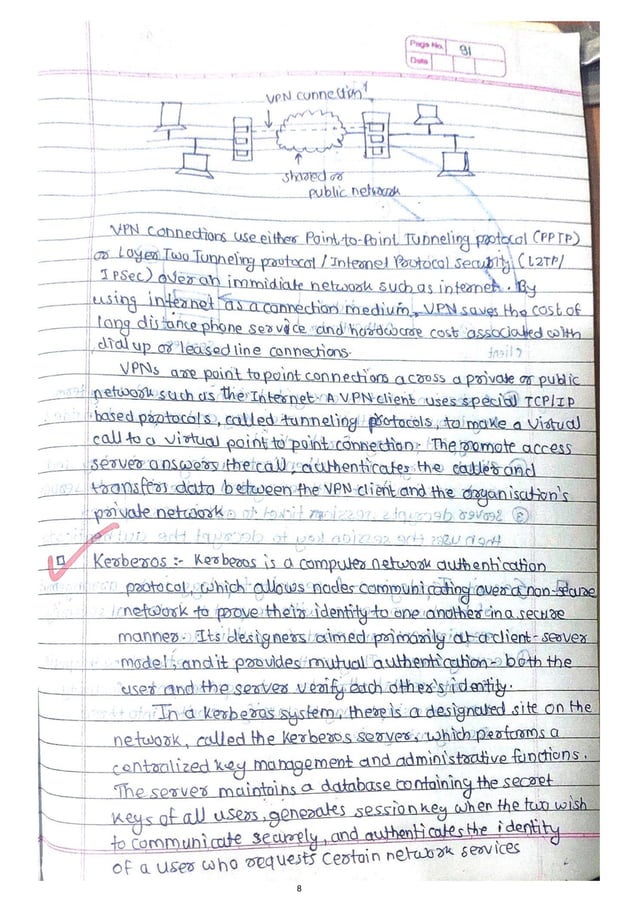 Page No. 91
Date
VPN connection
shared or
public network
VPN connections use either Point-to-Point Tunneling protocol (PPTP)
or Layer Two Tunneling protocol / Internet Protocol security (L2TP/
IPSec) over an immidiate network such as internet. By
using internet as a connection medium, VPN saves the cost of
long distance phone service and hardware cost associated with
dial up or leased line connections.
VPNs are point to point connections across a private or public
network such as the Internet. A VPN client uses special TCP/IP
based protocols, called tunneling protocols, to make a virtual
call to a virtual point to point connection. The romote access
server answers the call, authenticates the caller and
transfers data between the VPN client and the organisation's
private network
Kerberos :- Kerberos is a computer network authentication
protocol, which allows nodes communicating over a non-secure
network to prove their identity to one another in a secure
manner. Its designers aimed primarily at a client-server
model, and it provides mutual authentication - both the
user and the server verify each other's identity.
In a kerberos system, there is a designated site on the
network, called the kerberos server, which performs a
centralized key management and administrative functions.
The server maintains a database containing the secret
keys of all users, generates session key when the two wish
to communicate securely, and authenticates the identity
of a user who requests certain network services
8